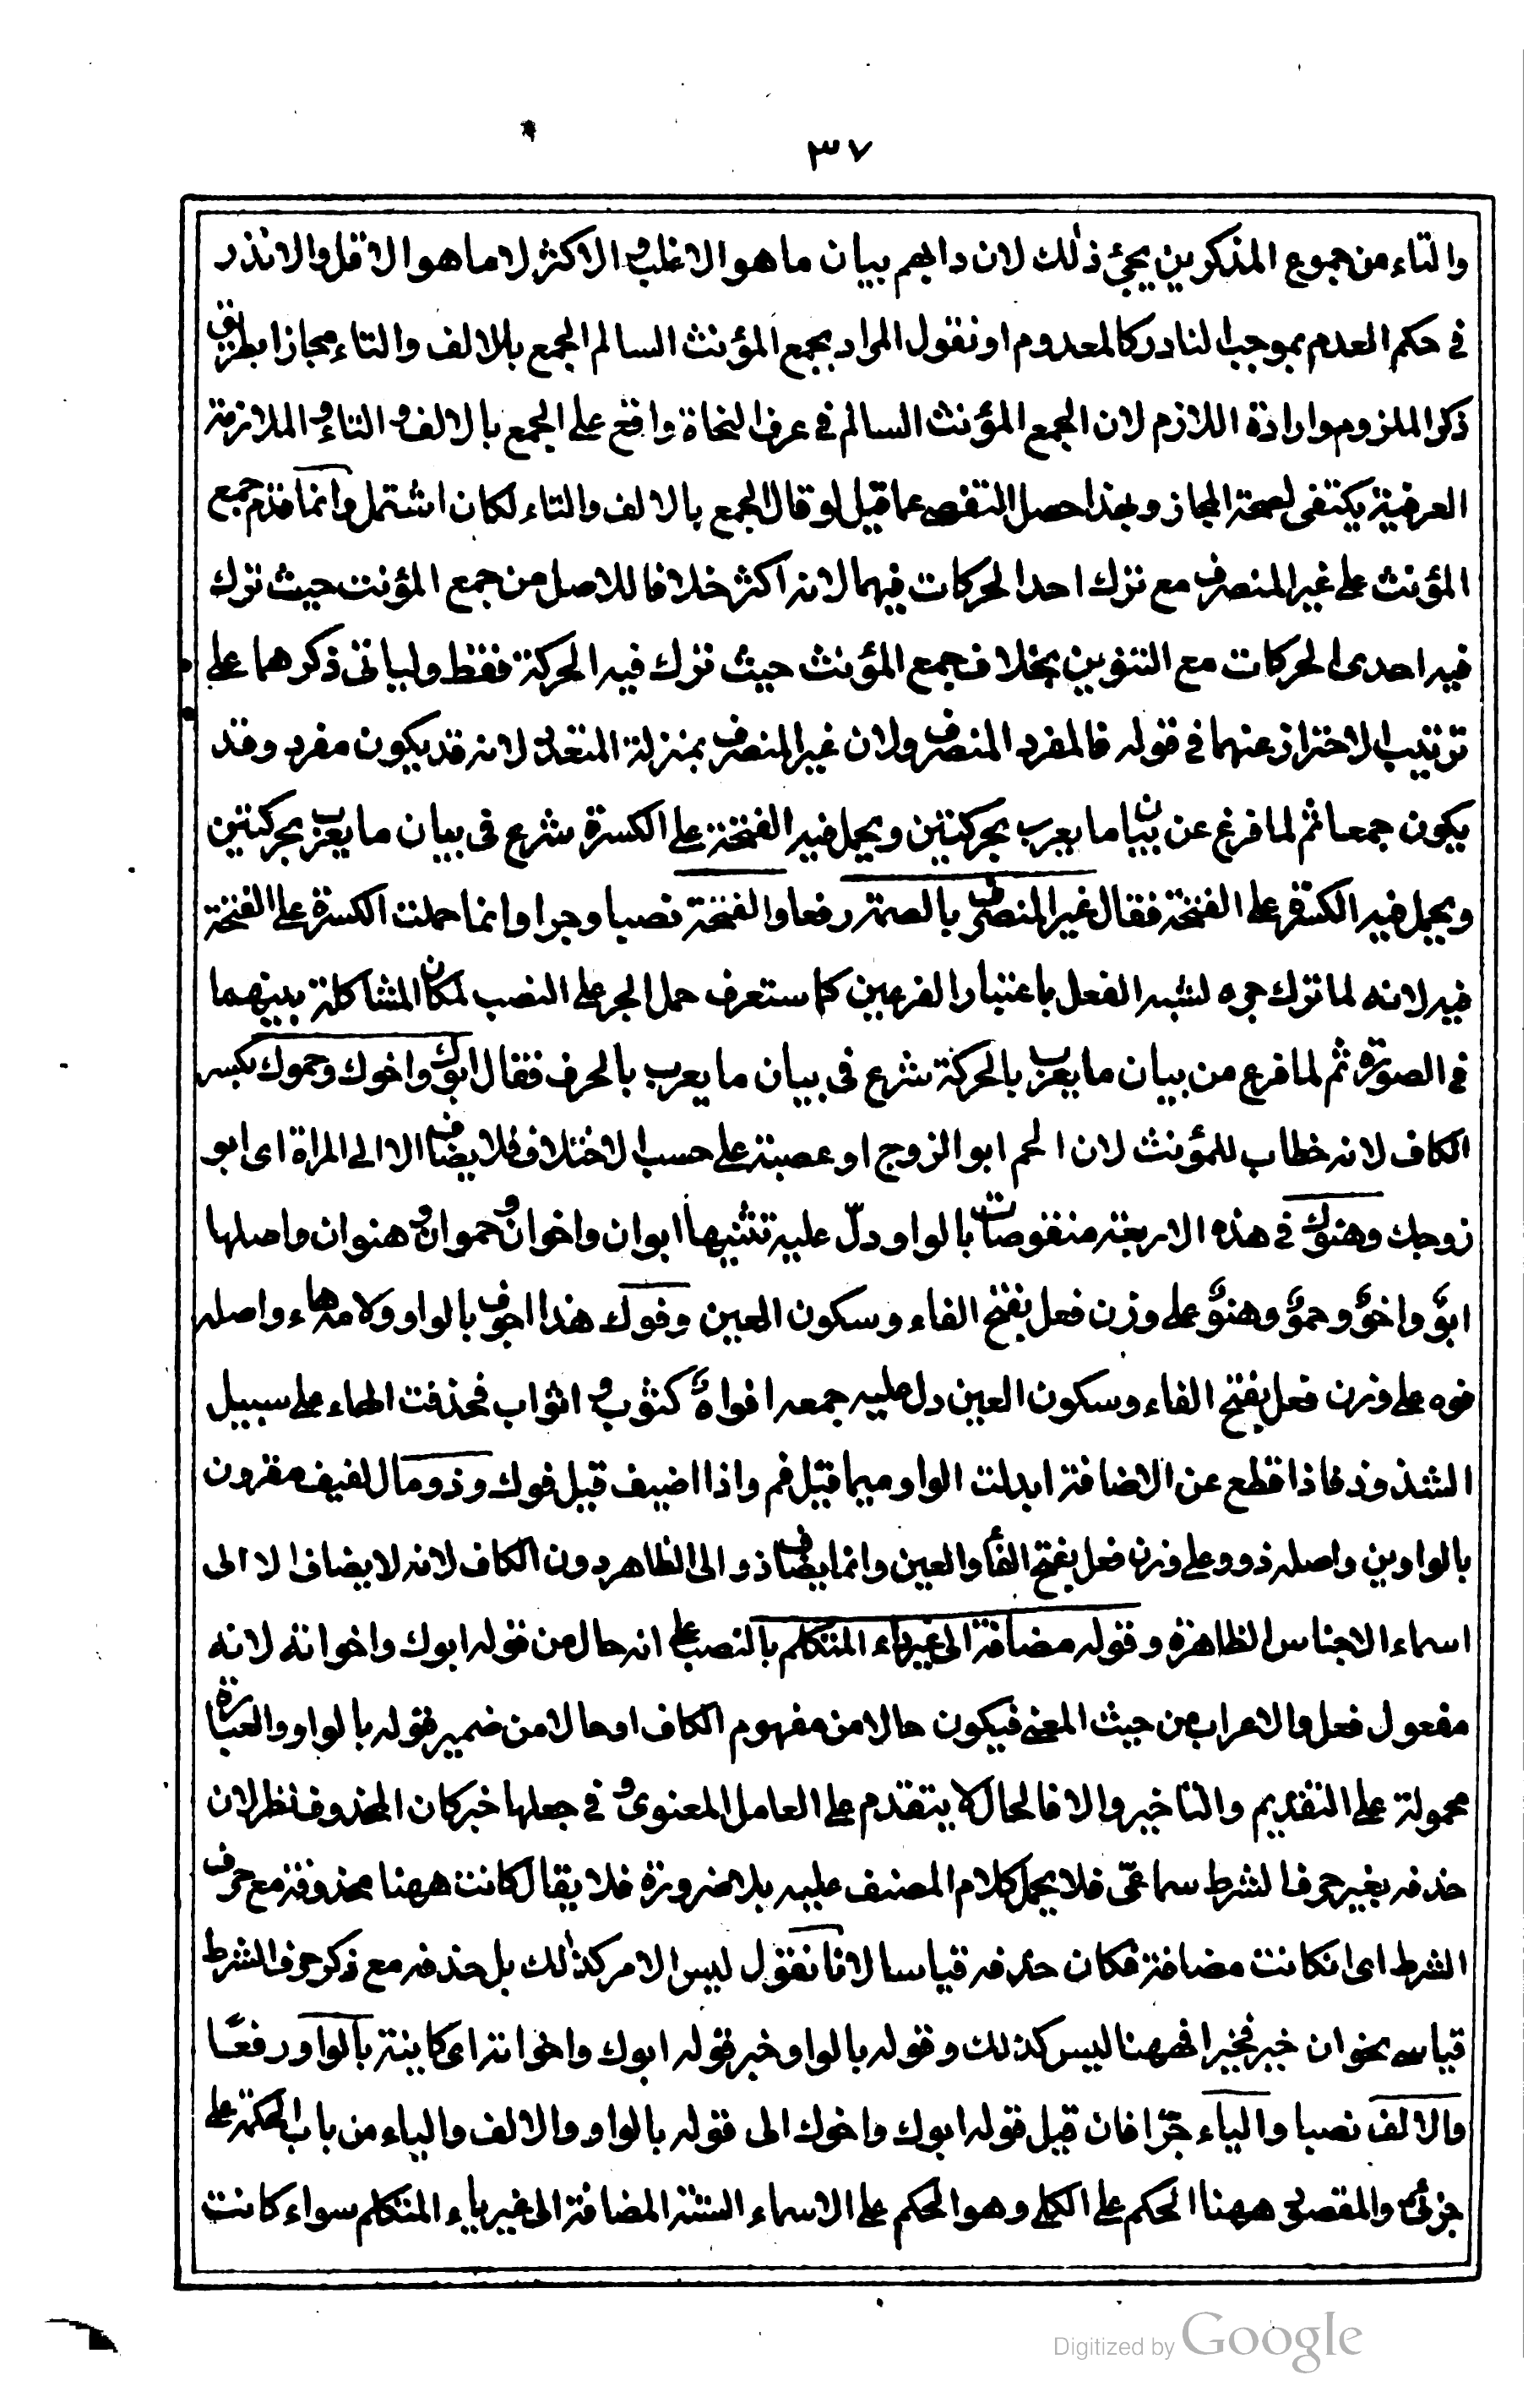 ٣٧
والتاء من جموع المذكرين يجئ ذلك لان دابهم بيان ما هو الاغلب و الاكثر لا ما هو الاقل والانذر
فى حكم العدم بموجب النادر كالمعدوم او نقول المراد بجمع المؤنث السالم الجمع بالالف والتاء مجازا بطريق
ذكر الملزوم وارادة اللازم لان الجمع المؤنث السالم فى عرف النحاة واقع على الجمع بالالف والتاء و الملازمة
العرفية يكتفى لصحة المجاز وبهذا حصل التفصى عما قيل لو قال الجمع بالالف والتاء لكان اشتمل وانما قدم جمع
المؤنث على غير المنصرف مع ترك احد الحركات فيهما لانه اكثر خلافا للاصل من جمع المؤنث حيث ترك
فيه احدى الحركات مع التنوين بخلاف جمع المؤنث حيث ترك فيه الحركة فقط وليباتى ذكرهما على
ترتيب الاحتراز عنهما فى قوله فالمفرد المنصرف ولان غير المنصرف بمنزلة المتعدد لانه قد يكون مفرد وقد
يكون جمعا ثم لما فرغ عن بيان ما يعرب بحركتين ويحمل فيه الفتحة على الكسرة شرع فى بيان ما يعرب بحركتين
ويحمل فيه الكسرة على الفتحة فقال غير المنصرف بالضمة رفعا والفتحة نصبا وجرا وانما حملت الكسرة على الفتحة
فيه لانه لما ترك جره لشبه الفعل باعتبار الفرعين كما ستعرف حمل الجر على النصب لمكان المشاكلة بينهما
فى الصورة ثم لما فرع من بيان ما يعرب بالحركة شرع فى بيان ما يعرب بالحرف فقال ابوك واخوك وحموك بكسر
الكاف لانه خطاب للمؤنث لان الحم ابو الزوج او عصبته على حسب الاختلاف فلا يضاف الا الى المراة اى ابو
زوجك وهنوك فى هذه الاربعة منقوصات بالواو ودلّ عليه تثنيها ابوان واخوان و حموان و هنوان واصلها
ابوٌ واخوٌ وحموٌ وهنوٌ على وزن فعل بفتح الفاء وسكون العين وفوك هذا اجوف بالواو ولامه هاء واصله
فوه على وزن فعل بفتح الفاء وسكون العين دل عليه جمعه افواهٌ كثوب و اثواب فحذفت الهاء على سبيل
الشذوذ فاذا قطع عن الاضافة ابدلت الواو ميما قيل فم واذا اضيف قيل فوك وذو مال لفيف مقرون
بالواوين واصله ذوو على وزن فعل بفتح الفأ والعين وانما يضاف ذو الى الظاهر دون الكاف لانه لا يضاف الا الى
اسماء الاجناس الظاهرة وقوله مضافة الى غير ياء المتكلم بالنصب على انه حال من قوله ابوك واخواته لانه
مفعول فعل والاعراب من حيث المعنى فيكون حالا من مفهوم الكاف او حالا من ضمير قوله بالواو والعبارة
محمولة على التقديم والتاخير والا فالحال لا يتقدم على العامل المعنوى و فى جعلها خبر كان المحذوف نظر لان
حذفه بغير حرف الشرط سماعىّ فلا يحمل كلام المصنف عليه بلا ضرورة فلا يقال كانت ههنا محذوفة مع حرف
الشرط اى ان كانت مضافة فكان حذفه قياسا لانا نقول ليس الامر كذلك بل حذفه مع ذكر حرف الشرط
قياسى نحو ان خير فخيرا فههنا ليس كذلك وقوله بالواو خبر قوله ابوك واخواته اى كاينة بالواو رفعًا
والالف نصبا والياء جرّا فان قيل قوله ابوك واخوك الى قوله بالواو والالف والياء من باب الحكمة على
جزئى والمقصود ههنا الحكم على الكلى وهو الحكم على الاسماء الستة المضافة الى غير ياء المتكلم سواء كانت
Digitized by Google